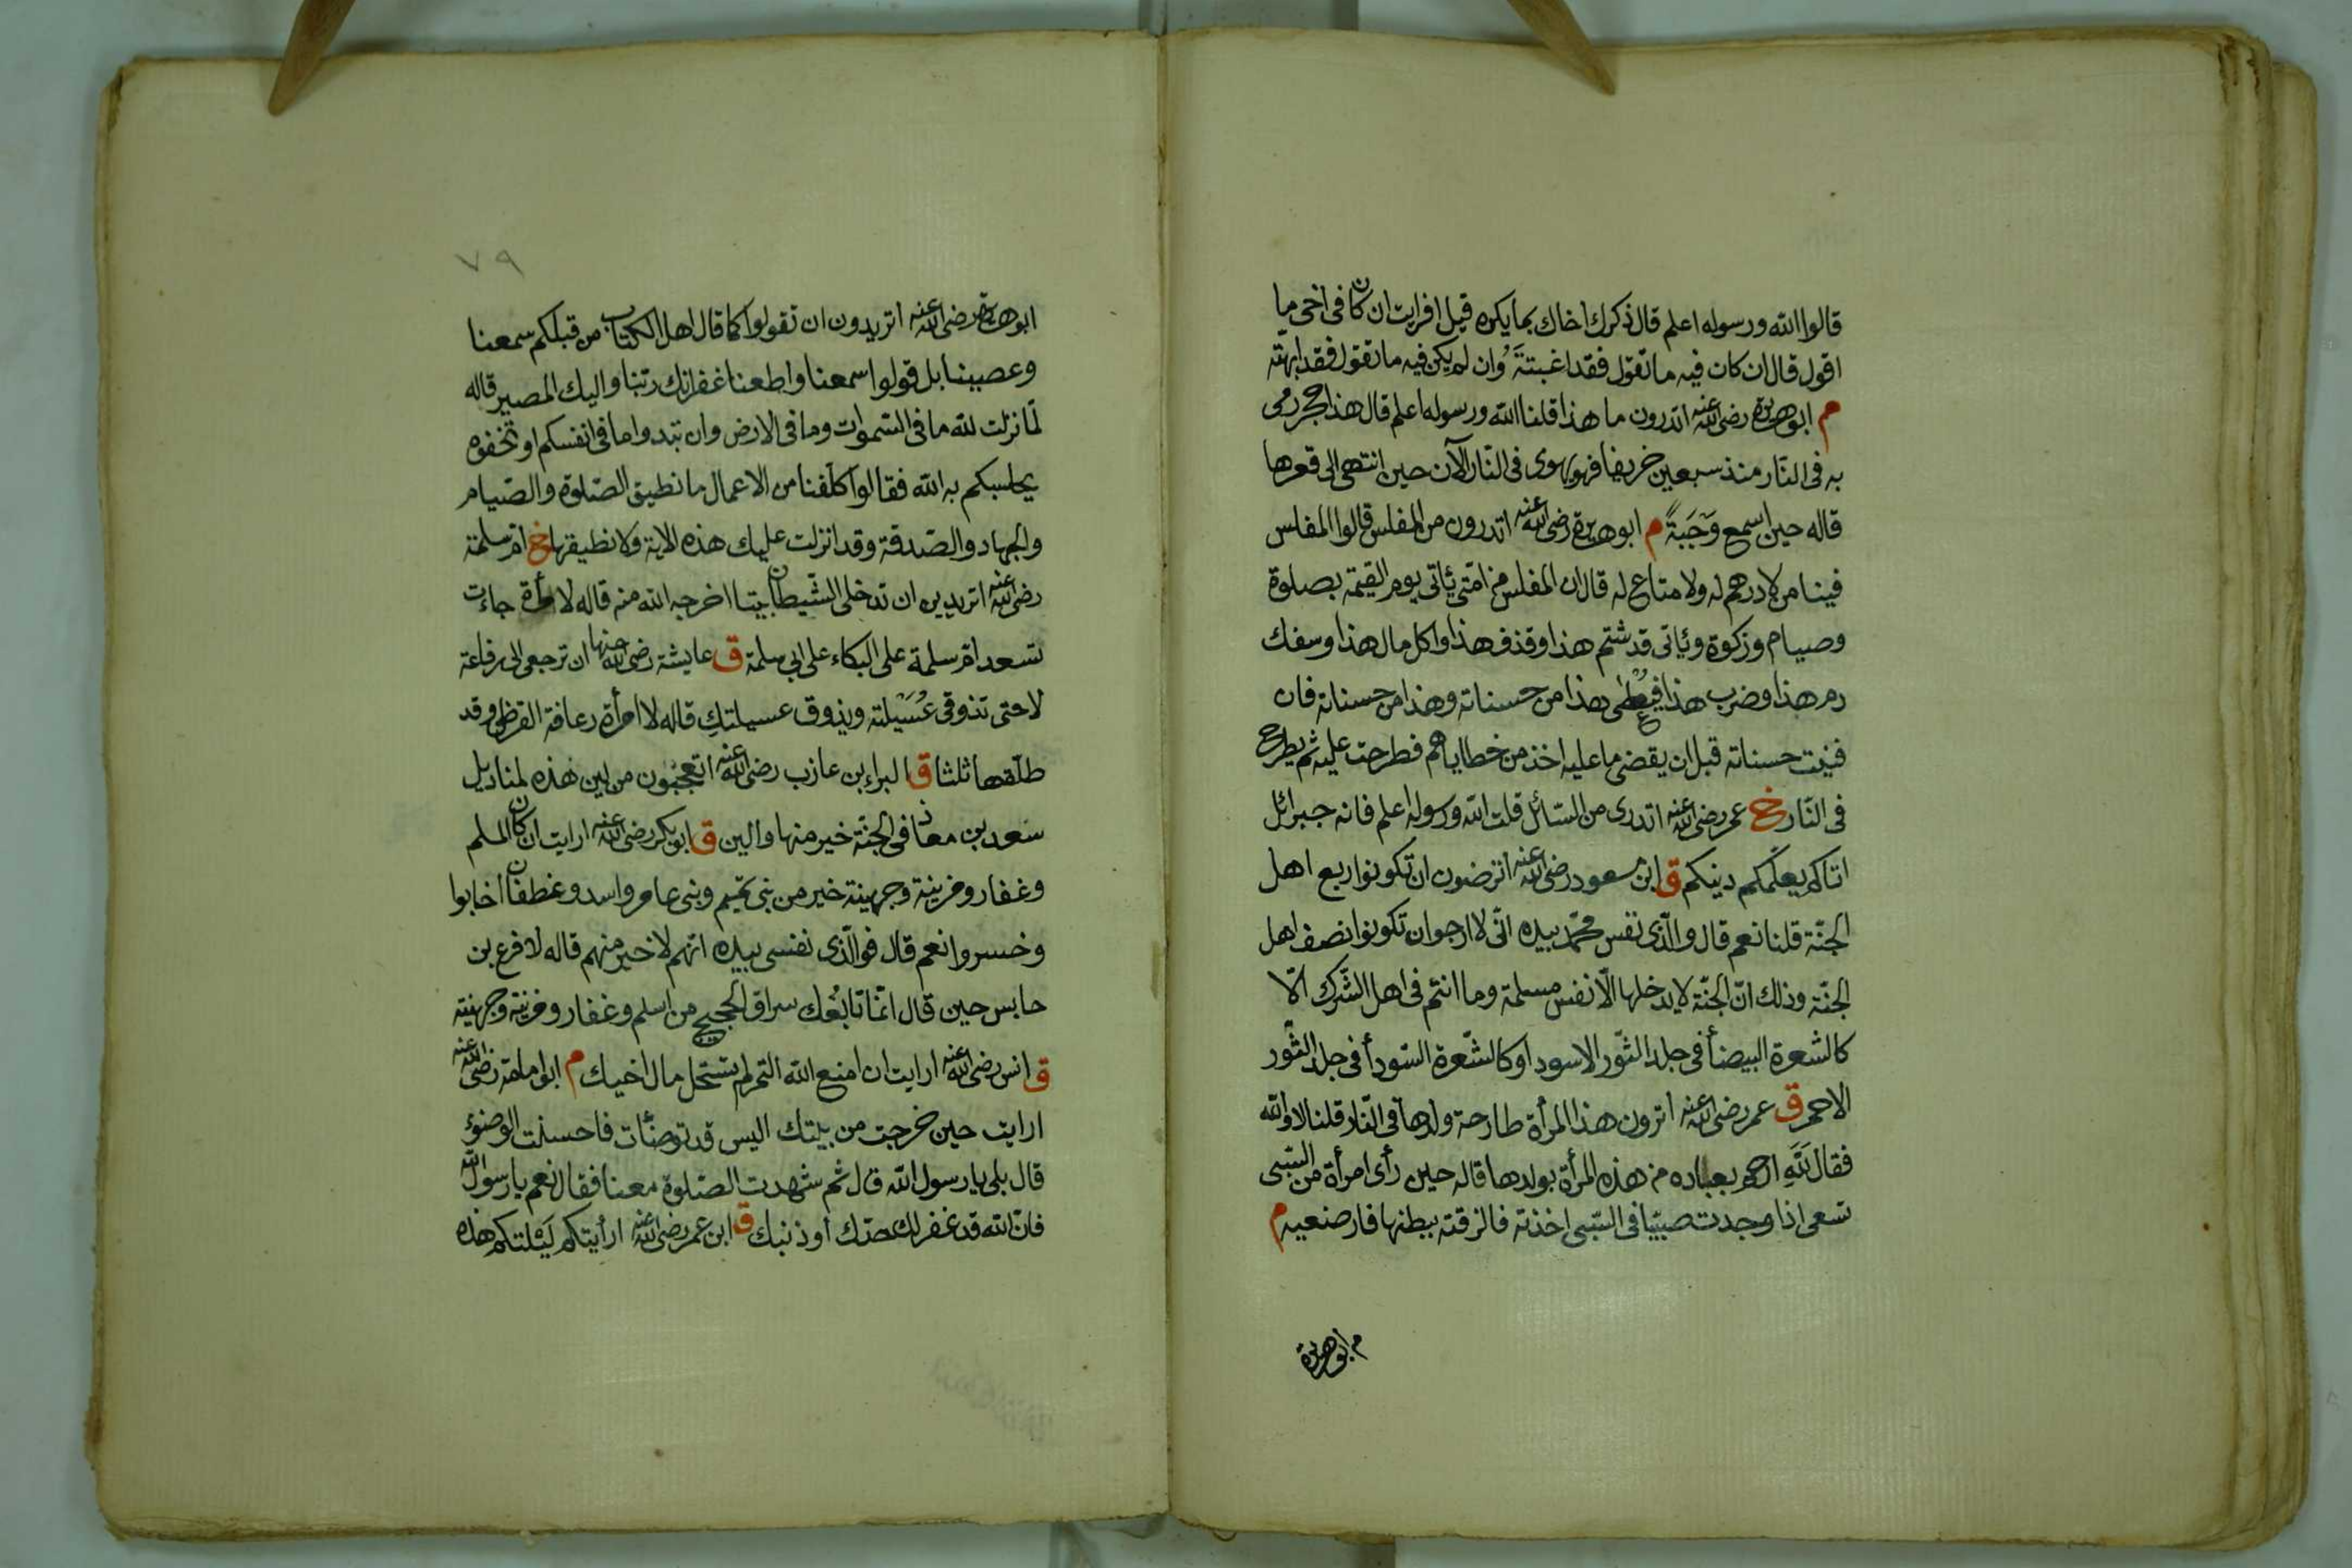 قالوا الله ورسوله اعلم قال ذكرك اخاك بما يكره قيل افرايت ان كان فى اخى ما
اقول قال ان كان فيه ما تقول فقد اغبتته وان لم يكن فيه ما تقول فقد ابهته
م ابو هريرة رضى الله عنه اتدرون ما هذا قلنا الله ورسوله اعلم قال هذا حجر رمى
به فى النار منذ سبعين خريفا فهو يهوى فى النار الآن حين انتهى الى قعرها
قاله حين اسمع وَجَبَةً م ابو هريرة رضى الله عنه اتدرون من المفلس قالوا المفلس
فينا من لا درهم له ولا متاع له قال ان المفلس من امتى ئاتى يوم القيمة بصلوة
وصيام وزكوة وئاتى قد شتم هذا وقذف هذا واكل مال هذا وسفك
دم هذا وضرب هذا فيعطى هذا من حسناته وهذا من حسناته فان
فنيت حسناته قبل ان يقضى ما عليه اخذ من خطاياهم فطرحت عليه ثم يطرح
فى النار خ عمر رضى الله عنه اتدرى من السائل قلت الله ورسوله اعلم فانه جبرائل
اتاكم يعلمكم دينكم ق ابن مسعود رضى الله عنه اترضون ان تكونوا ربع اهل
الجنّة قلنا نعم قال والّذى نفس محمّد بيده انّى لا ارجوا ان تكونوا نصف اهل
الجنّة وذلك انّ الجنّة لا يدخلها الّا نفس مسلمة وما انتم فى اهل الشّرك الّا
كالشعرة البيضأ فى جلد الثّور الاسود او كالشّعرة السّودأ فى جلد الثّور
الاحمر ق عمر رضى الله عنه اترون هذا المرأة طارحة ولدها فى النّار قلنا لا والله
فقال لَلّهِ ارحم بعباده من هذه المرأة بولدها قاله حين رأى امرأة من السّبى
تسعى اذا وجدت صبيّا فى السّبى اخذته فالزقته ببطنها فارضعيه م
م ابو هريرة
٧٩
ابو هريرة رضى الله عنه اتريدون ان تقولوا كما قال اهل الكتاب من قبلكم سمعنا
وعصينا بل قولوا سمعنا واطعنا غفرانك ربّنا واليك المصير قاله
لمّا نزلت لله ما فى السّموات وما فى الارض وان تبدوا ما فى انفسكم او تخفوه
يحاسبكم به الله فقالوا كلّفنا من الاعمال ما نطيق الصّلوة والصّيام
والجهاد والصّدقة وقد انزلت عليك هذه الاية ولا نطيقها خ امّ سلمة
رضى الله عنه اتريدين ان تدخلى الشّيطان بيتا اخرجه الله منه قاله لامرأة جاءت
تسعد امّ سلمة على البكاء على ابى سلمة ق عايشة رضى الله عنها ان ترجعى الى رفاعة
لا حتى تذوقى عُسَيْلته ويذوق عسيلتكِ قاله لا امرأة رعافة القرظى وقد
طلّقها ثلثا ق البراء بن عازب رضى الله عنه اتعجبون من لين هذه لمناديل
سعد بن معاذ فى الجنّة خير منها والين ق ابو بكر رضى الله عنه ارايت ان كان المسلم
وغفار ومزينة وجهينة خير من بنى تميم وبنى عامر واسد وغطفان اخابوا
وخسروا نعم قال فوالّذى نفسى بيده انّهم لا خير منهم قاله لاقرع بن
حابس حين قال انّما تابعُك سراق الحجيج من اسلم وغفار ومزينة وجهينة
ق انس رضى الله عنه ارايت ان امنع الله التمر لم تستحل مال اخيك م ابو امامة رضى الله عنه
ارايت حين خرجت من بيتك اليس قد توضّأت فاحسنت الوضؤ
قال بلى يا رسول الله قال ثم شهدت الصّلوة معنا فقال نعم يا رسول الله
فانّ الله قد غفر لك حدّك او ذنبك ق ابن عمر رضى الله عنه ارأيتكم ليلتكم هذه